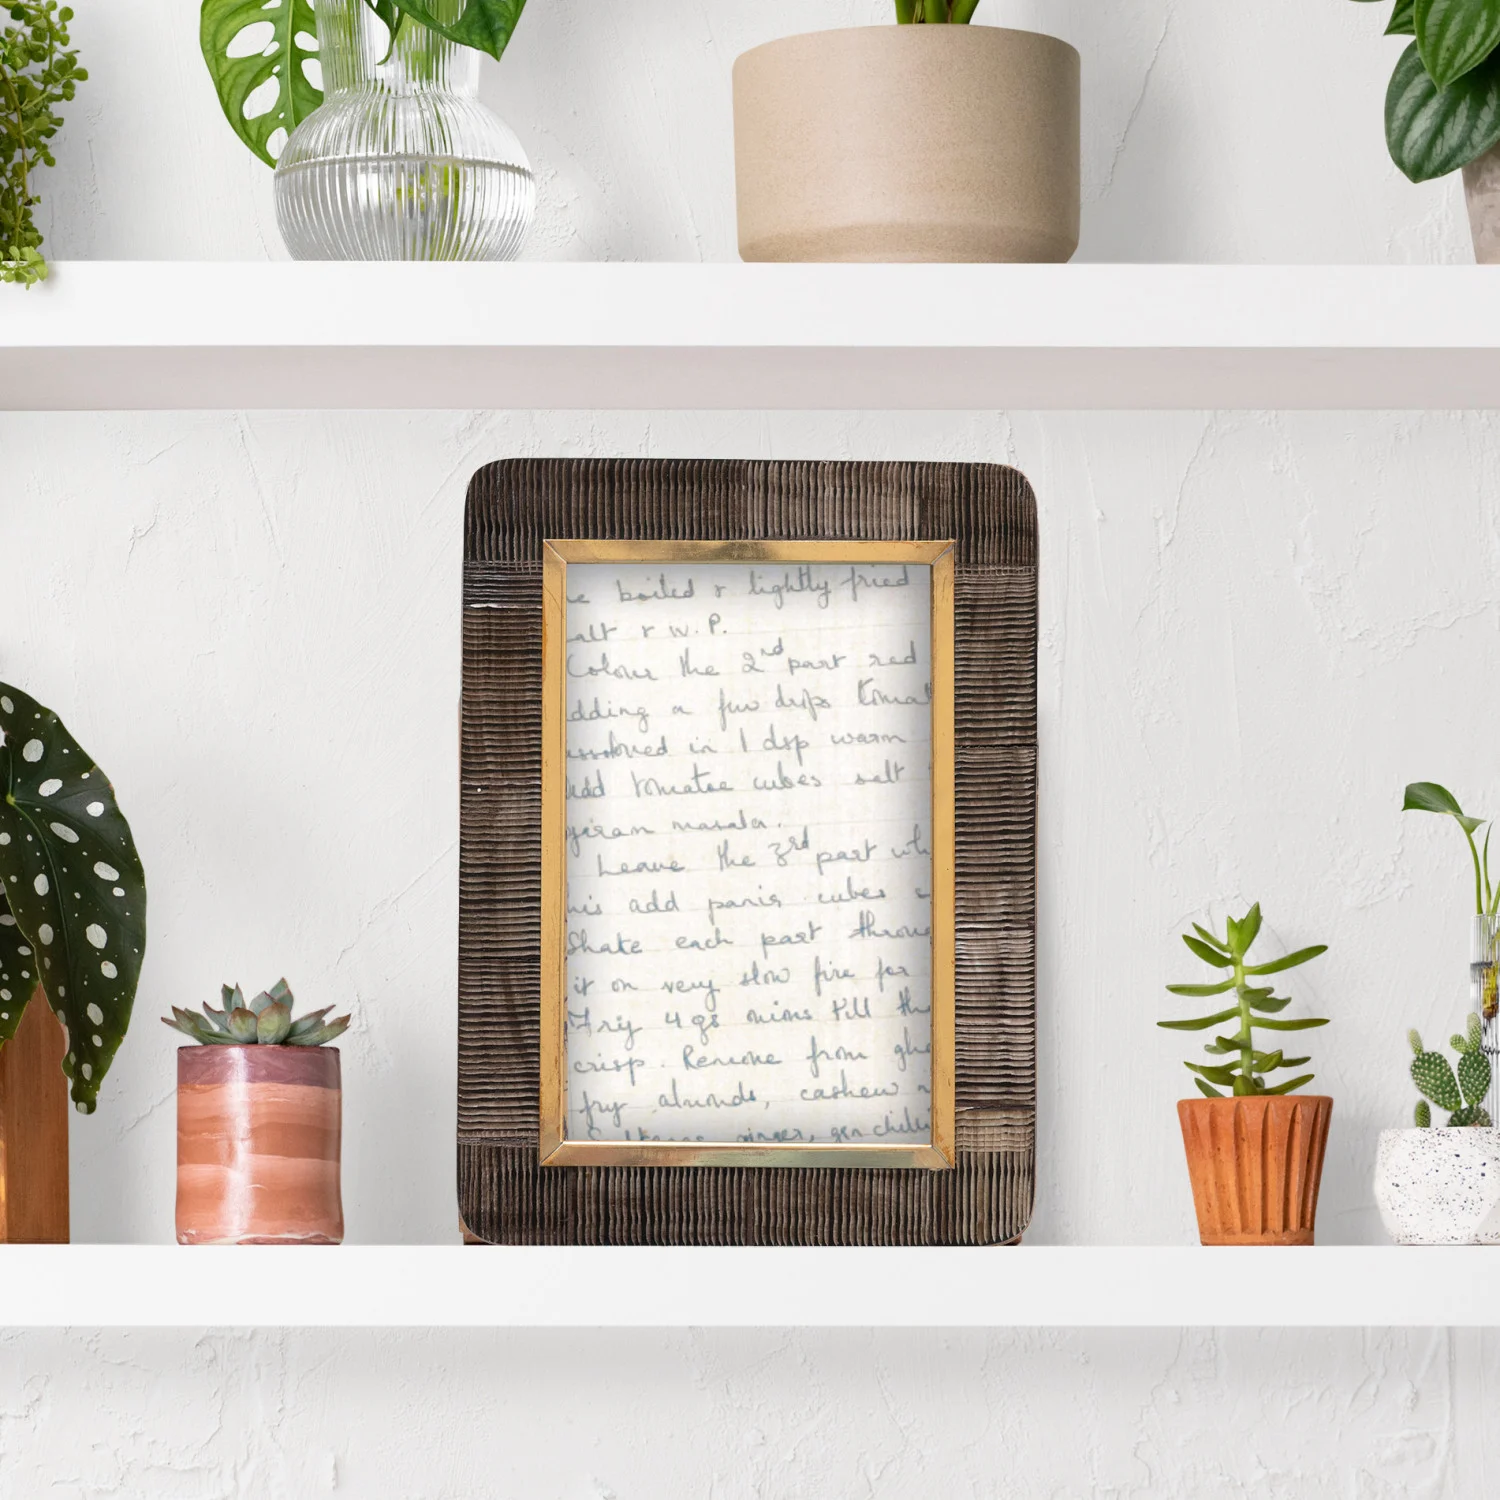 e boiled & lightly fried
alt & W.P.
Colour the 2nd part red
dding a few drops tomat
issolved in 1 dsp warm
add tomatoe cubes salt
giram masala.
Leave the 3rd part whi
his add panir cubes
Shake each part throug
it on very slow fire for
Fry 4 gs mins till the
crisp. Remove from ghe
fry almonds, cashew n
Sultanas ginger, grn chilli